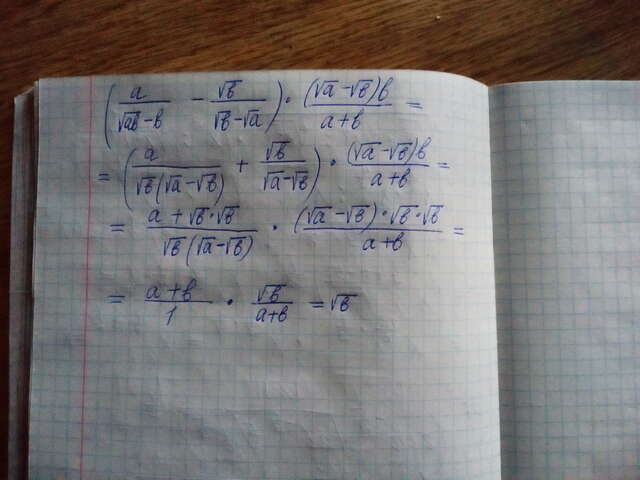 (a/(√ab-b) - √b/(√b-√a)) · ((√a-√b)b)/(a+b) =
= (a/(√b(√a-√b)) + √b/(√a-√b)) · ((√a-√b)b)/(a+b) =
= (a+√b·√b)/(√b(√a-√b)) · ((√a-√b)·√b·√b)/(a+b) =
= (a+b)/1 · √b/(a+b) = √b